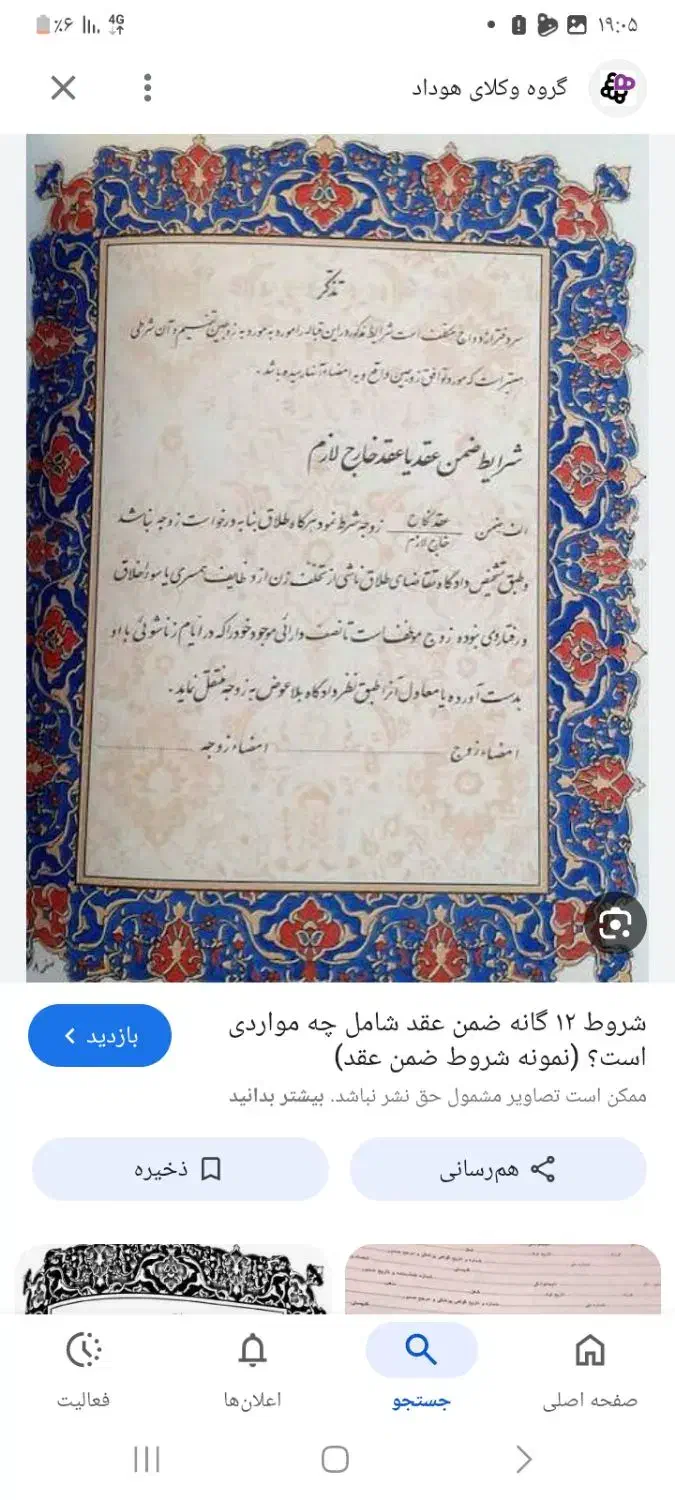 ۱۹:۰۵
4G
٪۶
گروه وکلای هوداد
تذکر
سردفتر ازدواج مکلف است شرایط مذکور در این قباله را مورد به مورد به زوجین تفهیم و آن شرطی
معتبر است که مورد توافق زوجین واقع و به امضاء آنها رسیده باشد.
شرایط ضمن عقد یا عقد خارج لازم
الف ضمن عقد نکاح / خارج لازم زوجه شرط نمود هرگاه طلاق بنا به درخواست زوجه نباشد
و طبق تشخیص دادگاه تقاضای طلاق ناشی از تخلف زن از وظایف همسری یا سوء اخلاق
و رفتار وی نبوده زوج موظف است تا نصف دارائی موجود خود را که در ایام زناشوئی با او
بدست آورده یا معادل آنرا طبق نظر دادگاه بلاعوض به زوجه منتقل نماید.
امضاء زوج امضاء زوجه
شروط ۱۲ گانه ضمن عقد شامل چه مواردی
است؟ (نمونه شروط ضمن عقد)
بازدید
ممکن است تصاویر مشمول حق نشر نباشد. بیشتر بدانید
هم‌رسانی
ذخیره
صفحه اصلی
جستجو
اعلان‌ها
فعالیت